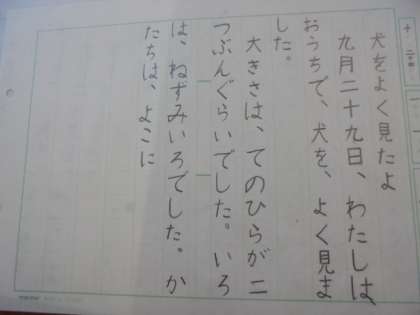 犬をよく見たよ
九月二十九日、わたしは
おうちで、犬を、よく見ま
した。
大きさは、てのひらが二
つぶんぐらいでした。いろ
は、ねずみいろでした。か
たちは、よこに